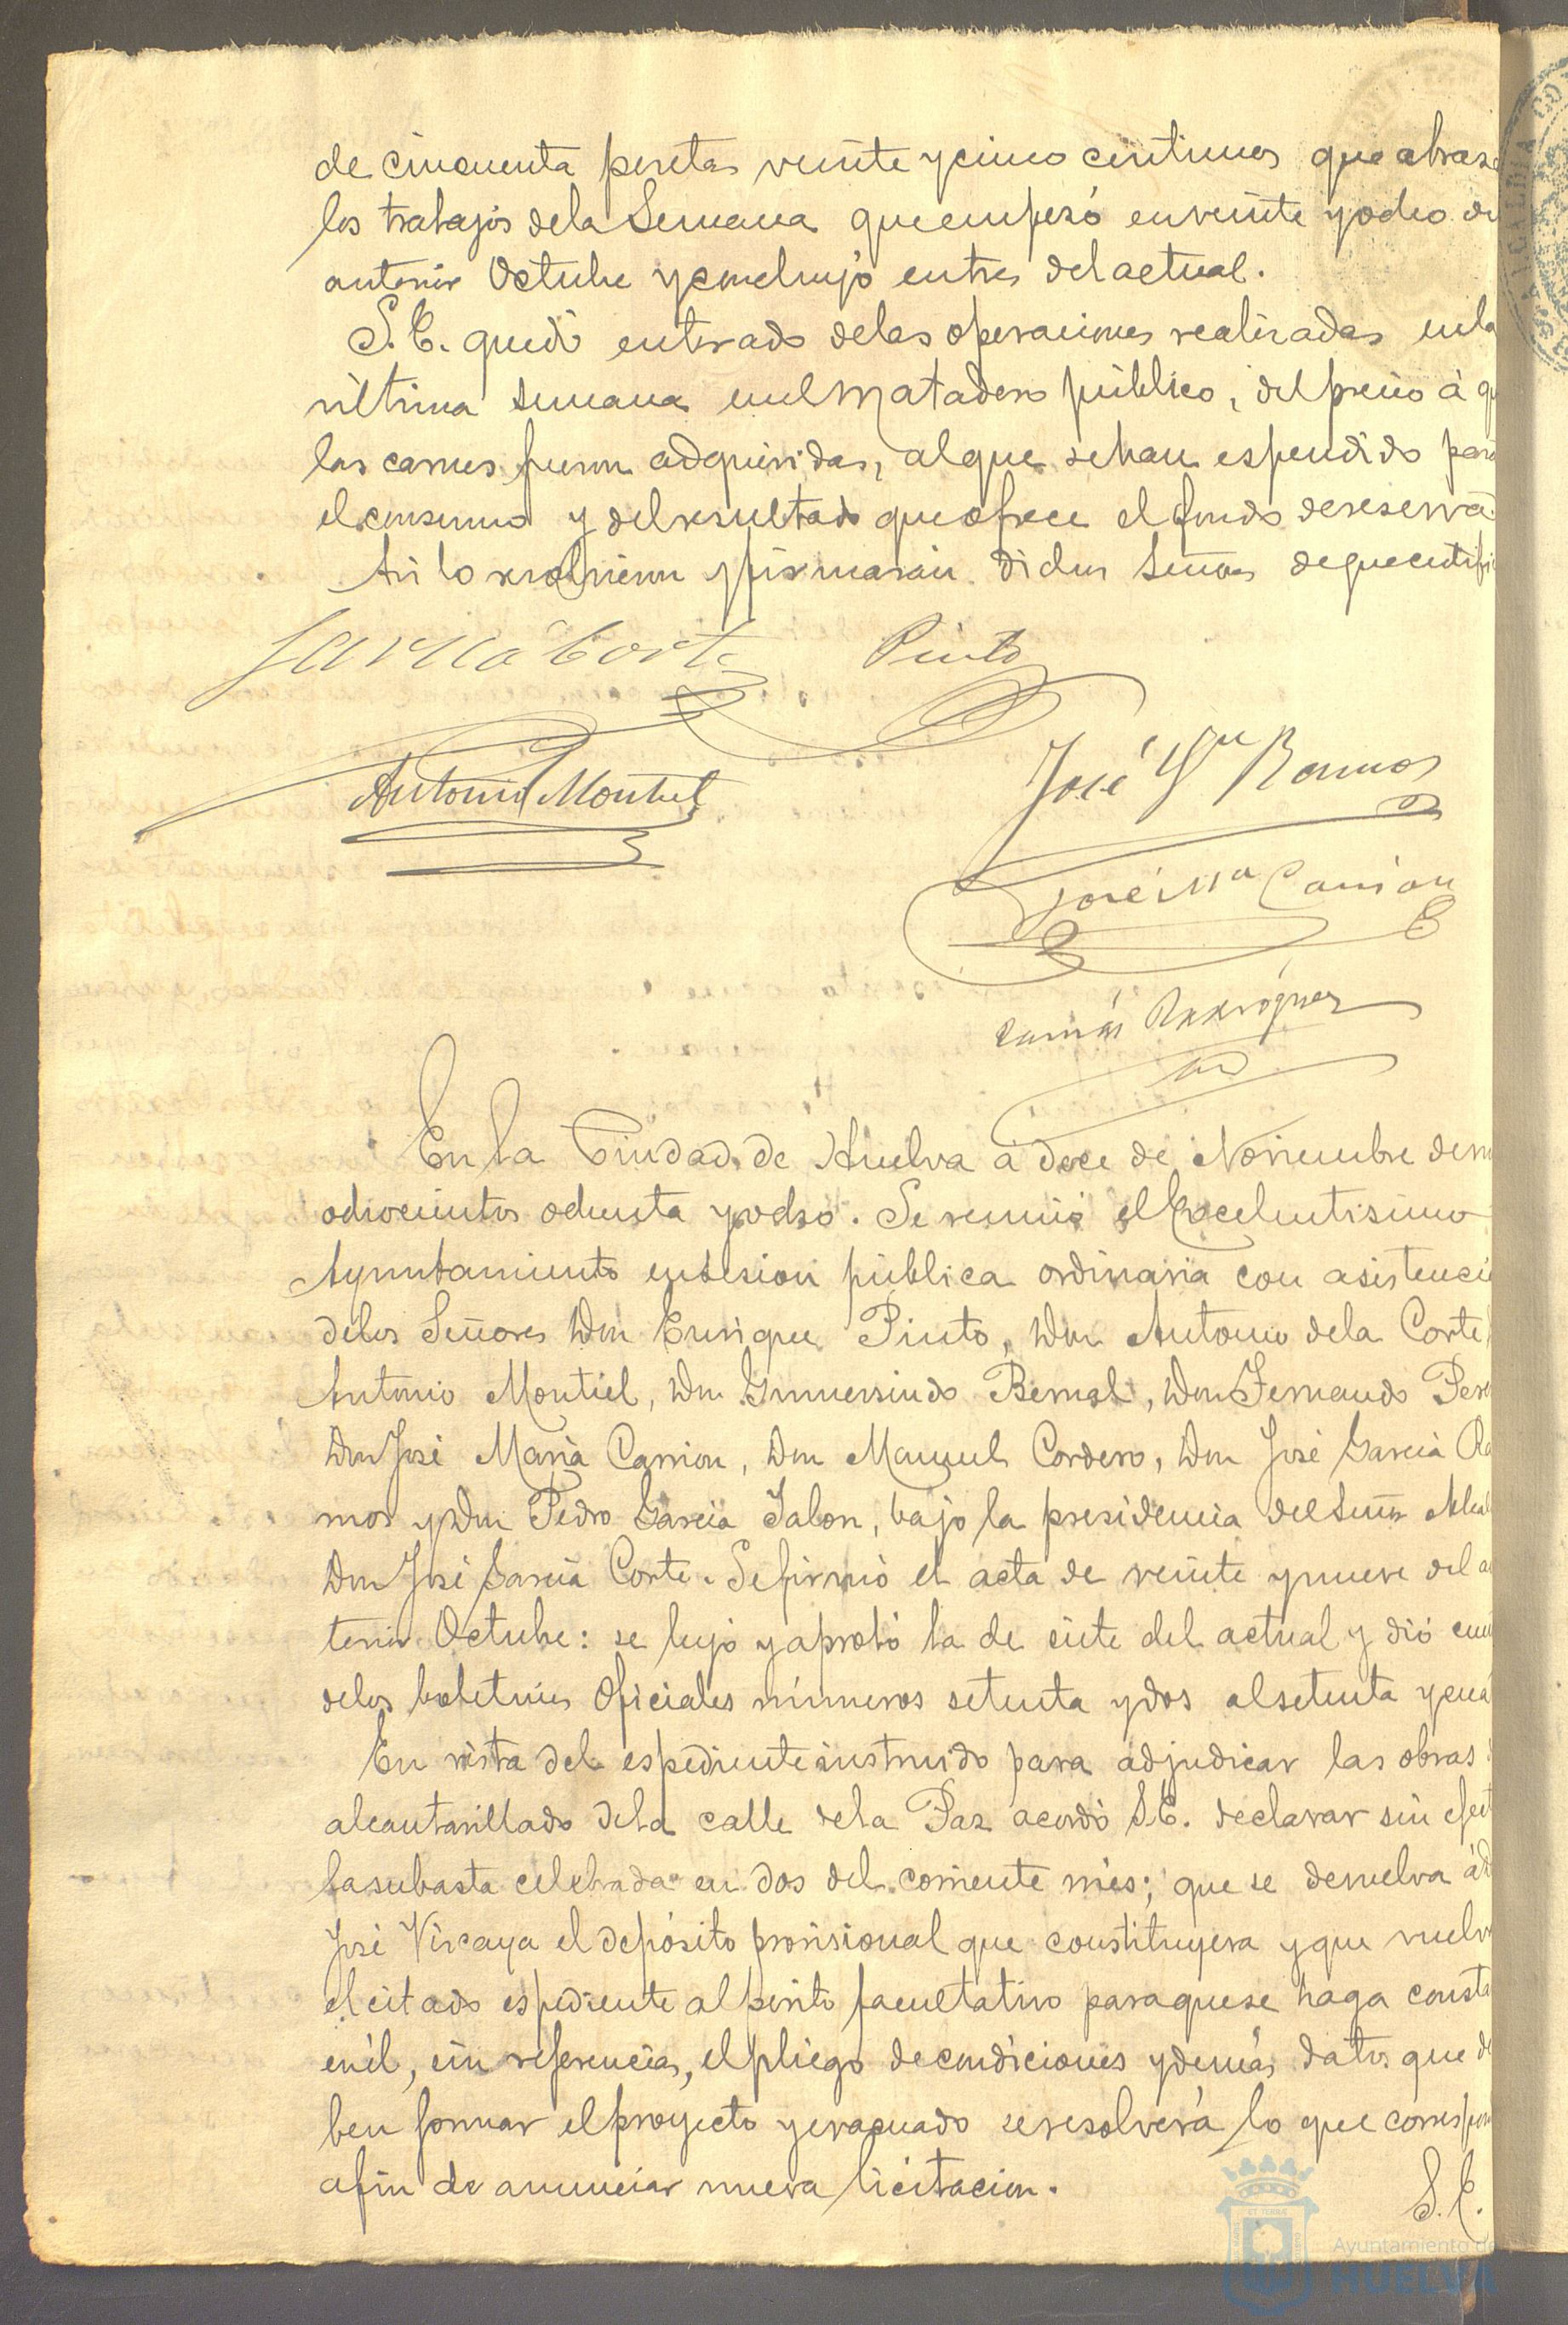 de cincuenta pesetas veinte y cinco centimos que abraza
los trabajos de la Semana que empezó en veinte y ocho de
anterior Octubre y concluyó en tres del actual.
S. E. quedó enterado de las operaciones realizadas en la
última semana en el Matadero público, del precio á q
las carnes fueron adquiridas, al que se han espendido para
el consumo y del resultado que ofrece el fondo de reserva.
Asi lo resolvieron y firmarán dichos Señores de que certifi
García Corte Pinto
Antonio Montiel
José Gª Ramos
José Mª Carrion
Tomás Rodríguez
En la Ciudad de Huelva á doce de Noviembre de m
ochocientos ochenta y ocho. Se reunió el Excelentisimo
Ayuntamiento en sesion pública ordinaria con asistenci
de los Señores Don Enrique Pinto, Don Antonio de la Corte
Antonio Montiel, Don Gumersindo Bernal, Don Fernando Per
Don José María Carrion, Don Manuel Cordero, Don José García Ra
mos y Don Pedro García Jalon, bajo la presidencia del Señor Alcal
Don José García Corte. Se firmó el acta de veinte y nueve del a
terior Octubre: se leyó y aprobó la de siete del actual y dió cuen
de los boletines Oficiales números setenta y dos al setenta y cua
En vista del espediente instruido para adjudicar las obras
alcantarillado de la calle de la Paz acordó S. E. declarar sin efect
la subasta celebrada en dos del corriente més; que se devuelva á
José Vizcaya el depósito provisional que constituyera y que vuelv
el citado espediente al perito facultativo para que se haga consta
en él, sin referencias, el pliego de condiciones y demás datos que de
ben formar el proyecto y evacuado se resolverá lo que correspon
afin de anunciar nueva licitacion.
S. E.
Ayuntamiento de
HUELVA